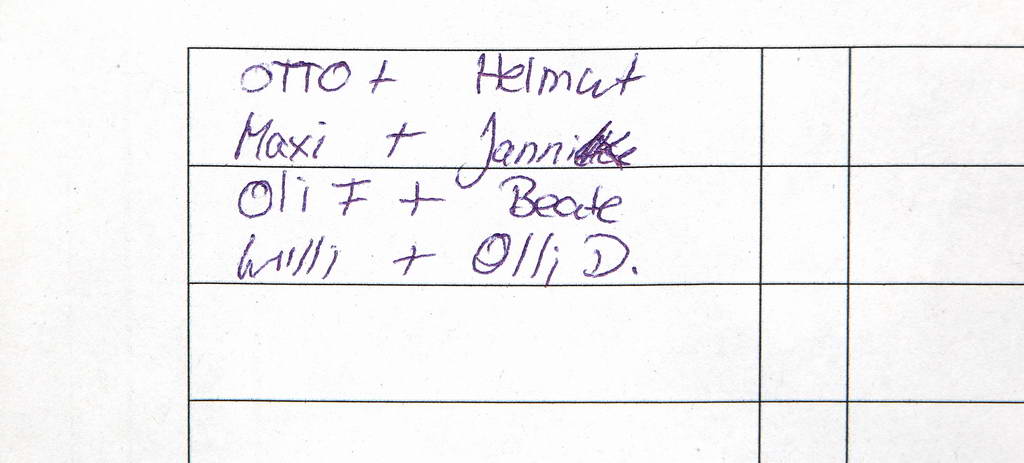 OTTO + Helmut
Maxi + Jannik
Oli F + Beate
Willi + Olli D.